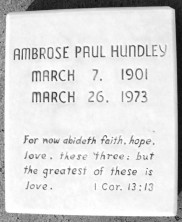 AMBROSE PAUL HUNDLEY
MARCH 7, 1901
MARCH 26, 1973
For now abideth faith, hope,
love, these three; but
the greatest of these is
love. 1 Cor. 13:13